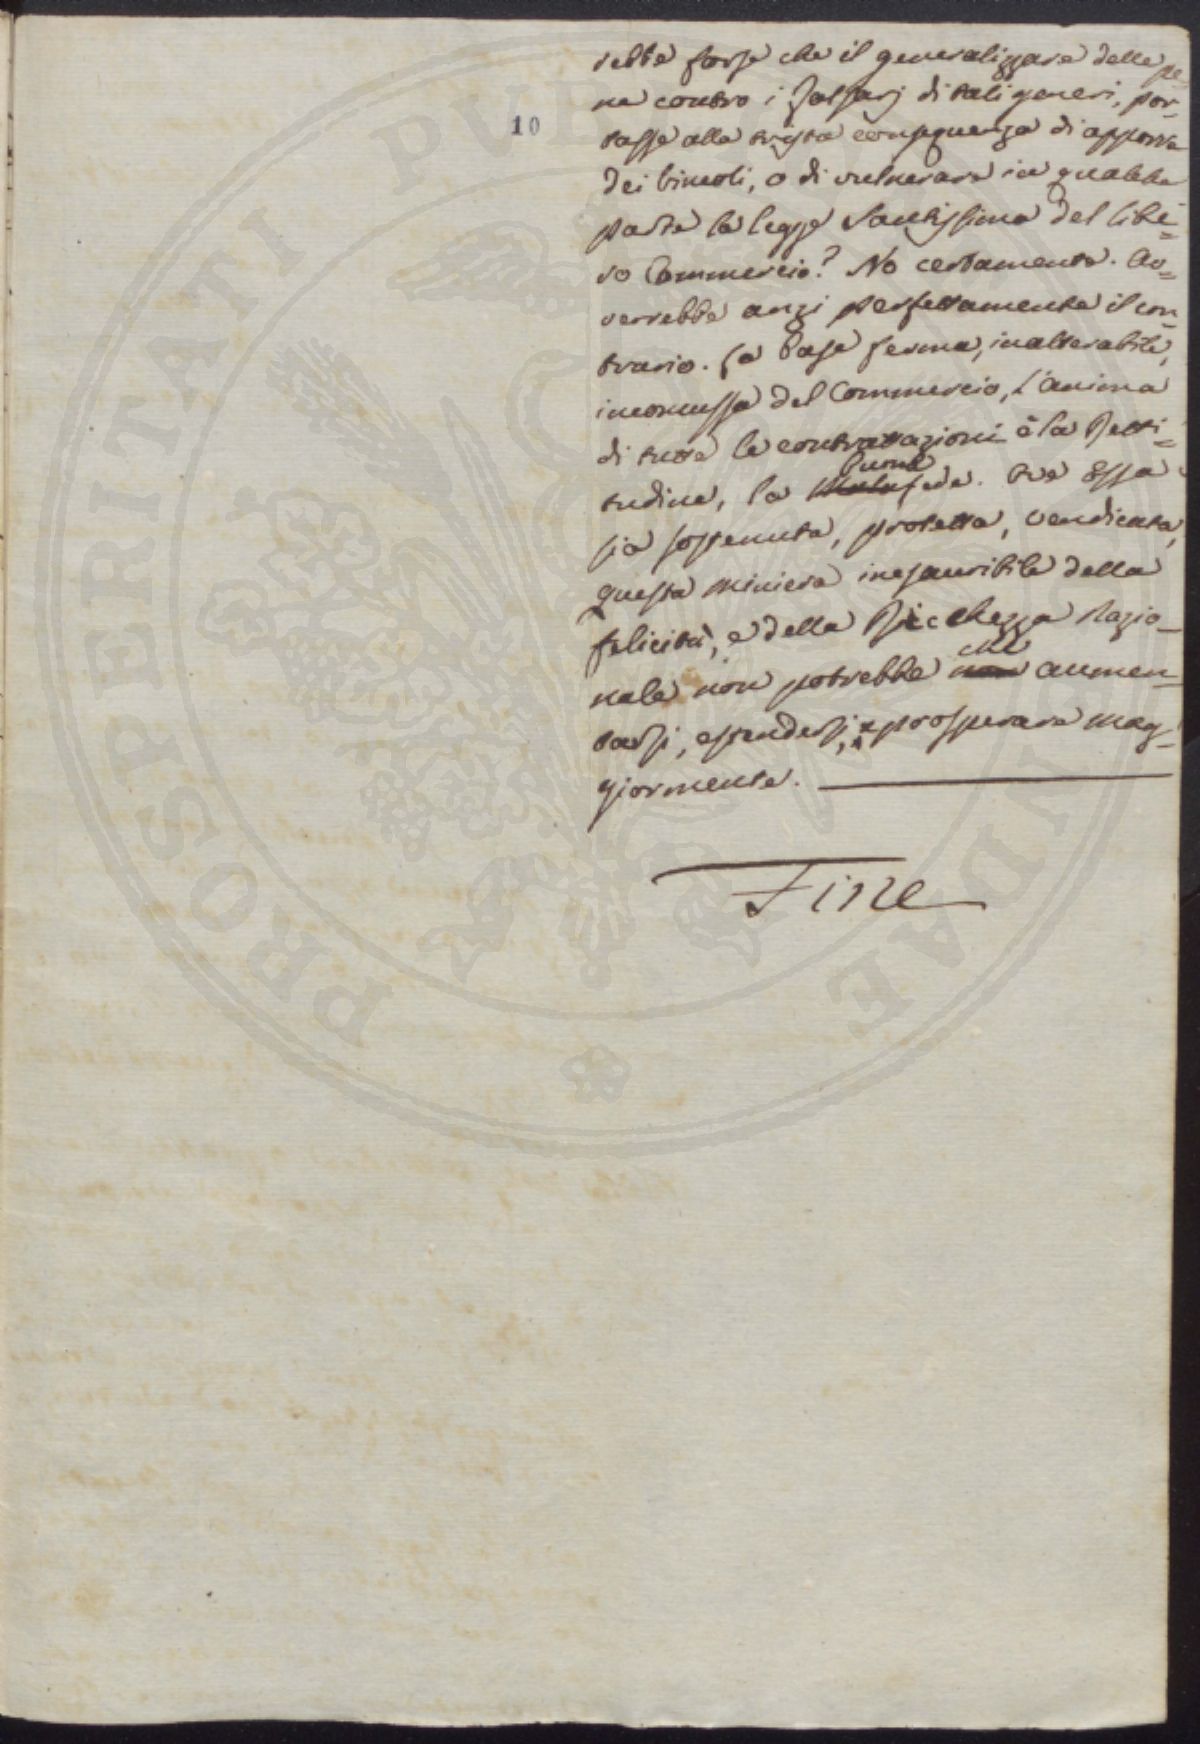 10
rebbe forse che il generalizzare delle pe
ne contro i Falsarj di tali generi, por-
tasse alla trista conseguenza di apporre
dei vincoli, o di vulnerare in qualche
parte la legge Santissima del libe=
ro Commercio? No certamente. Av=
verrebbe anzi perfettamente il con=
trario. La base ferma, inalterabile,
inconcussa del Commercio, l'anima
di tutte le contrattazioni è la Retti=
tudine, la buona fede. Ove Essa
sia sostenuta, protetta, vendicata,
questa miniera inesauribile della
felicità, e della Ricchezza Nazio-
nale non potrebbe che aumen=
tarsi, estendersi, e prosperare mag=
giormente.
Fine
PROSPERITATI PVBLICAE